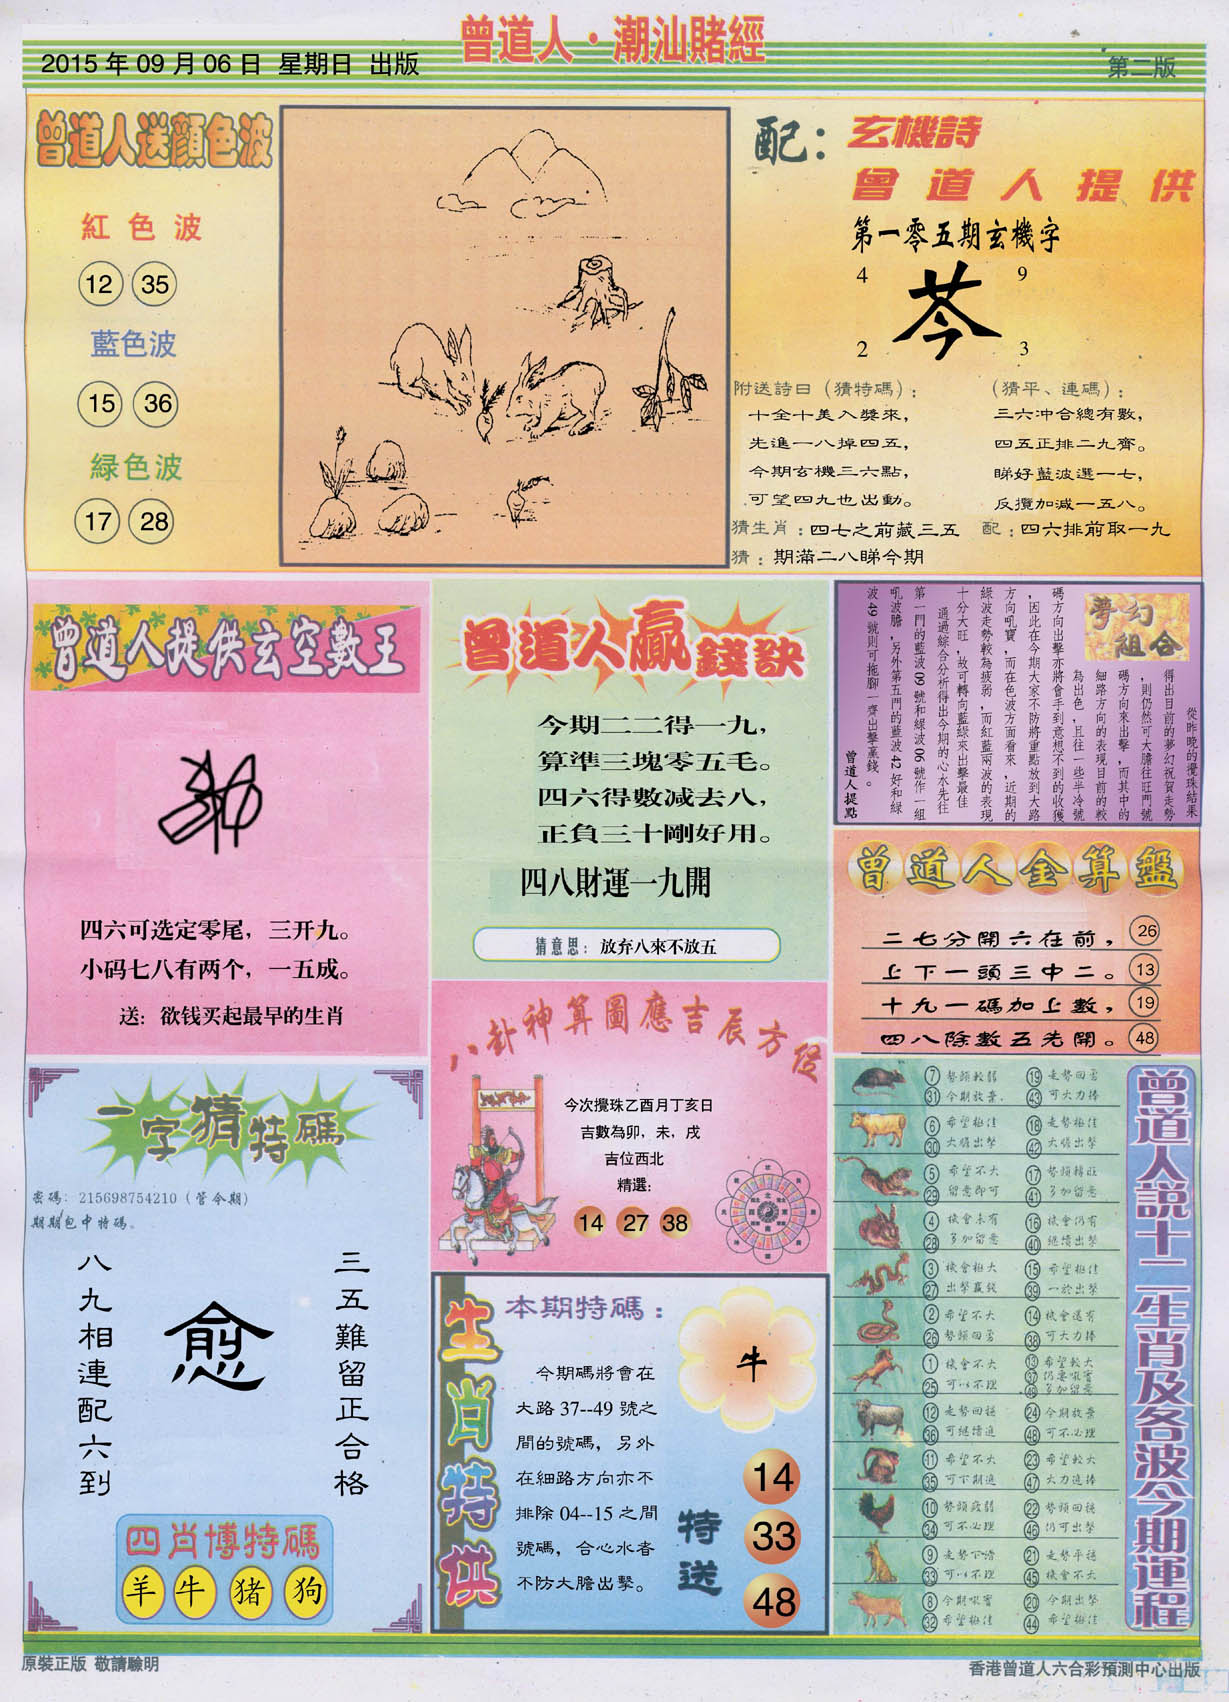 曾道人·潮汕賭經
2015 年 09 月 06 日 星期日 出版
第二版
曾道人送顏色波
紅色波
12 35
藍色波
15 36
緑色波
17 28
配：
玄機詩
曾道人提供
第一零五期玄機字
4 9
芩
2 3
附送詩日（猜特碼）：
十全十美入獎來，
先進一八掉四五，
今期玄機三六點，
可望四九也出動。
（猜平、連碼）：
三六冲合總有數，
四五正排二九齊。
睇好藍波選一七，
反攬加減一五八。
猜生肖：四七之前藏三五
配：四六排前取一九
猜：期滿二八睇今期
曾道人提供玄空數王
四六可选定零尾，三开九。
小码七八有两个，一五成。
送：欲钱买起最早的生肖
曾道人贏錢訣
今期二二得一九，
算準三塊零五毛。
四六得數減去八，
正負三十剛好用。
四八財運一九開
猜意思：放弃八來不放五
夢幻
組合
從昨晚的攪珠結果
得出目前的夢幻祝賀走勢
，則仍然可大膽往旺門號
碼方向來出擊，而其中的
細路方向的表現目前的較
為出色，且往一些半冷號
碼方向出擊亦將會手到意想不到的收獲
，因此在今期大家不防將重點放到大路
方向吼寶，而在色波方面看來，近期的
綠波走勢較為疲弱，而紅藍兩波的表現
十分大旺，故可轉向藍綠來出擊最佳
通過綜合分析得出今期的心水先往
第一門的藍波 09 號和綠波 06 號作一組
吼波膽，另外第五門的藍波 42 好和綠
波 49 號則可拖腳一齊出擊贏錢。
曾道人提點
曾道人金算盤
二七分開六在前，26
上下一頭三中二。13
十九一碼加上數，19
四八除數五先開。48
八卦神算圖應吉辰方位
今次攪珠乙酉月丁亥日
吉數為卯，未，戌
吉位西北
精選：
14 27 38
一字猜特碼
密碼：215698754210（管今期）
期期包中特碼。
三五難留正合格
愈
八九相連配六到
四肖博特碼
羊 牛 猪 狗
生肖特供
本期特碼：
今期碼將會在
大路 37--49 號之
間的號碼，另外
在細路方向亦不
排除 04--15 之間
號碼，合心水者
不防大膽出擊。
牛
特送
14
33
48
曾道人説十二生肖及各波今期運程
7 勢頭較弱 19 走勢回勇
31 今期放棄 43 可大力捧
6 希望極佳 18 走勢極佳
30 大膽出擊 42 大膽出擊
5 希望不大 17 勢頭轉旺
29 留意即可 41 多加留意
4 機會未有 16 機會仍有
28 多加留意 40 繼續出擊
3 機會極大 15 希望極佳
27 出擊贏錢 39 一於出擊
2 希望不大 14 機會還有
26 勢頭回勇 38 可大力捧
1 機會不大 13 希望較大
25 可以不理 37 仍要吸寶
49 多加留意
12 走勢回穩 24 今期放棄
36 可繼續追 48 可不必理
11 希望不大 23 希望較大
35 可下期追 47 大力追捧
10 勢頭疲弱 22 勢頭回穩
34 可不必理 46 仍可出擊
9 走勢下滑 21 走勢平穩
33 可以不理 45 機會不大
8 今期吸寶 20 今期出擊
32 希望極佳 44 希望極佳
原裝正版 敬請驗明
香港曾道人六合彩預測中心出版